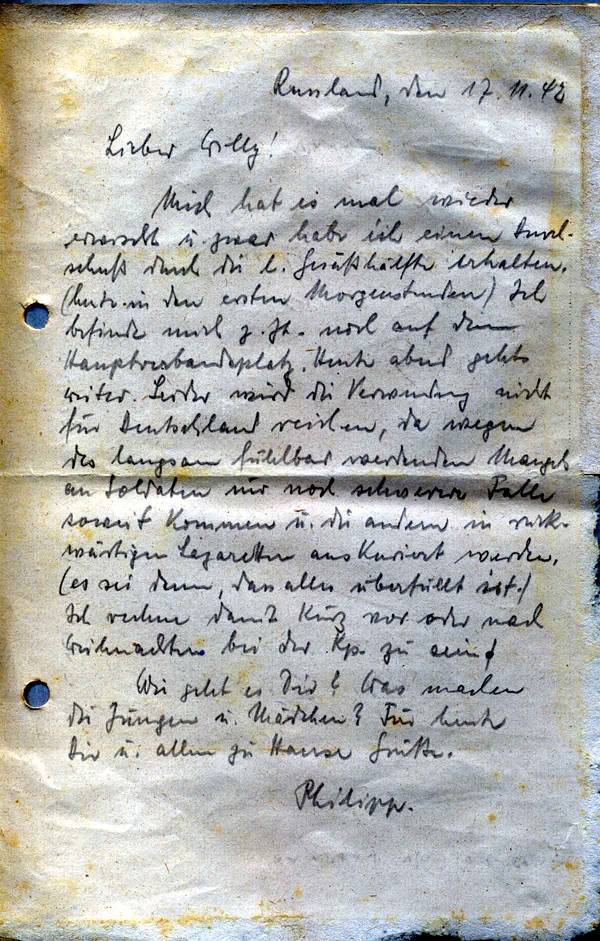 Russland, den 17.11.42
Lieber Willy!
Mich hat es mal wieder
erwischt u. zwar habe ich einen Durch-
schuß durch die l. Gesäßhälfte erhalten.
(heute in den ersten Morgenstunden) Ich
befinde mich z. Zt. noch auf dem
Hauptverbandsplatz. Heute abend gehts
weiter. Leider wird die Verwundung nicht
für Deutschland reichen, da wegen
des langsam fühlbar werdenden Mangels
an Soldaten nur noch schwerere Fälle
soweit kommen u. die andern in rück-
wärtigen Lazaretten auskuriert werden.
(es sei denn, dass alles überfüllt ist.)
Ich rechne damit kurz vor oder nach
Weihnachten bei der Kp. zu sein
Wie geht es Dir? Was machen
die Jungen u. Mädchen? Für heute
Dir u. allen zu Hause Grüße.
Philipp.